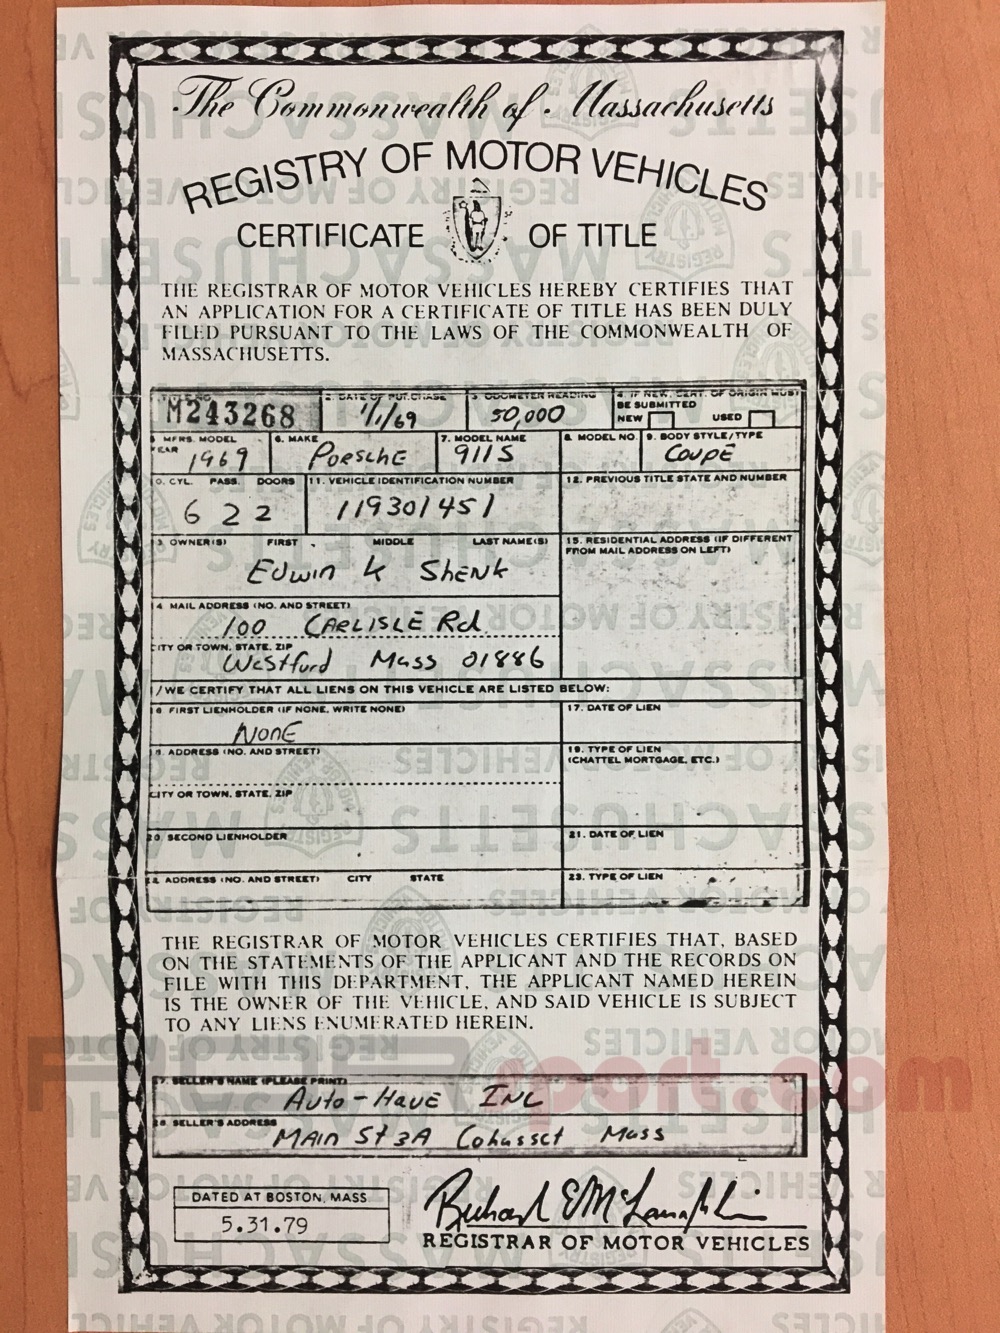 The Commonwealth of Massachusetts
REGISTRY OF MOTOR VEHICLES
CERTIFICATE OF TITLE
THE REGISTRAR OF MOTOR VEHICLES HEREBY CERTIFIES THAT
AN APPLICATION FOR A CERTIFICATE OF TITLE HAS BEEN DULY
FILED PURSUANT TO THE LAWS OF THE COMMONWEALTH OF
MASSACHUSETTS.
TITLE NO. 2. DATE OF PURCHASE 3. ODOMETER READING 4. IF NEW, CERT. OF ORIGIN MUST
BE SUBMITTED
M243268 1/1/69 50,000 NEW USED
5 MFRS. MODEL YEAR 6. MAKE 7. MODEL NAME 8. MODEL NO. 9. BODY STYLE/TYPE
1969 PORSCHE 911S COUPE
0. CYL. PASS. DOORS 11. VEHICLE IDENTIFICATION NUMBER 12. PREVIOUS TITLE STATE AND NUMBER
6 2 2 119301451
3. OWNER(S) FIRST MIDDLE LAST NAME(S) 15. RESIDENTIAL ADDRESS (IF DIFFERENT
FROM MAIL ADDRESS ON LEFT)
Edwin K Shenk
4 MAIL ADDRESS (NO. AND STREET)
100 CARLISLE Rd.
CITY OR TOWN, STATE, ZIP
Westford Mass 01886
I/WE CERTIFY THAT ALL LIENS ON THIS VEHICLE ARE LISTED BELOW:
16 FIRST LIENHOLDER (IF NONE, WRITE NONE) 17. DATE OF LIEN
NONE
ADDRESS (NO. AND STREET) 19. TYPE OF LIEN
(CHATTEL MORTGAGE, ETC.)
CITY OR TOWN, STATE, ZIP
20. SECOND LIENHOLDER 21. DATE OF LIEN
22. ADDRESS (NO. AND STREET) CITY STATE 23. TYPE OF LIEN
THE REGISTRAR OF MOTOR VEHICLES CERTIFIES THAT, BASED
ON THE STATEMENTS OF THE APPLICANT AND THE RECORDS ON
FILE WITH THIS DEPARTMENT, THE APPLICANT NAMED HEREIN
IS THE OWNER OF THE VEHICLE, AND SAID VEHICLE IS SUBJECT
TO ANY LIENS ENUMERATED HEREIN.
27. SELLER'S NAME (PLEASE PRINT)
Auto-Haus INC
28 SELLER'S ADDRESS
MAIN St 3A Cohasset Mass
DATED AT BOSTON, MASS
5.31.79
Richard E McLaughlin
REGISTRAR OF MOTOR VEHICLES